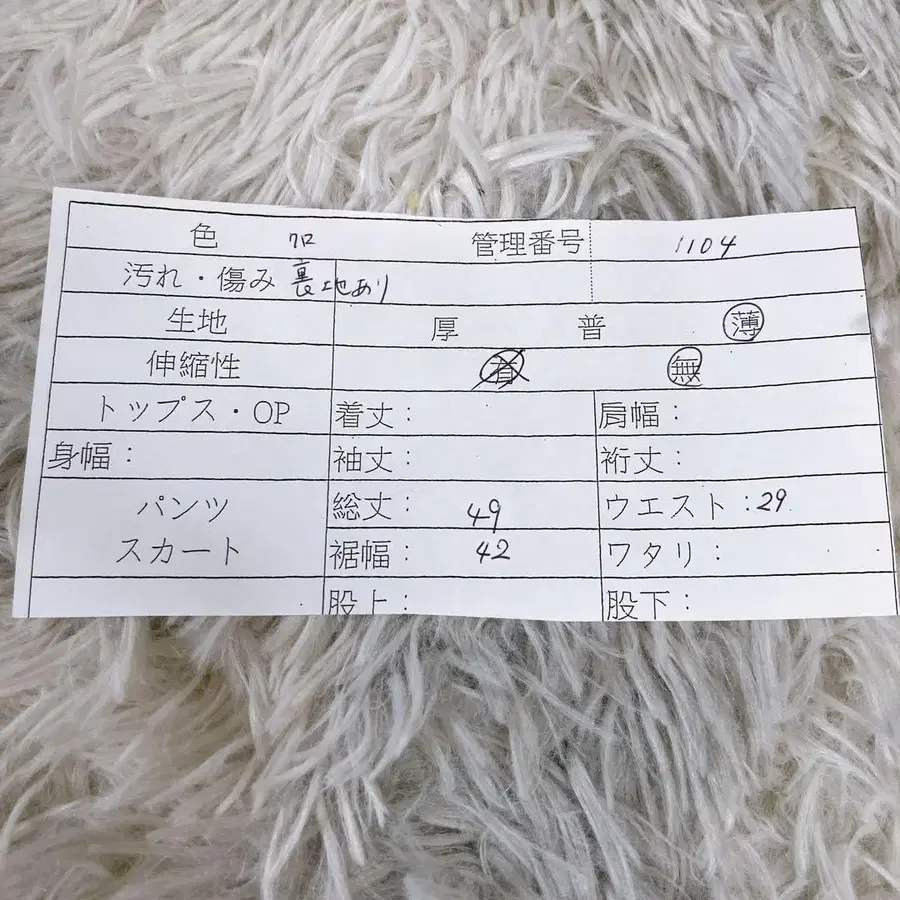 色 クロ 管理番号 1104
汚れ・傷み 裏地あり
生地 厚 普 薄
伸縮性 有 無
トップス・OP 着丈: 肩幅:
身幅: 袖丈: 裄丈:
パンツ 総丈: 49 ウエスト:29
スカート 裾幅: 42 ワタリ:
股上: 股下: